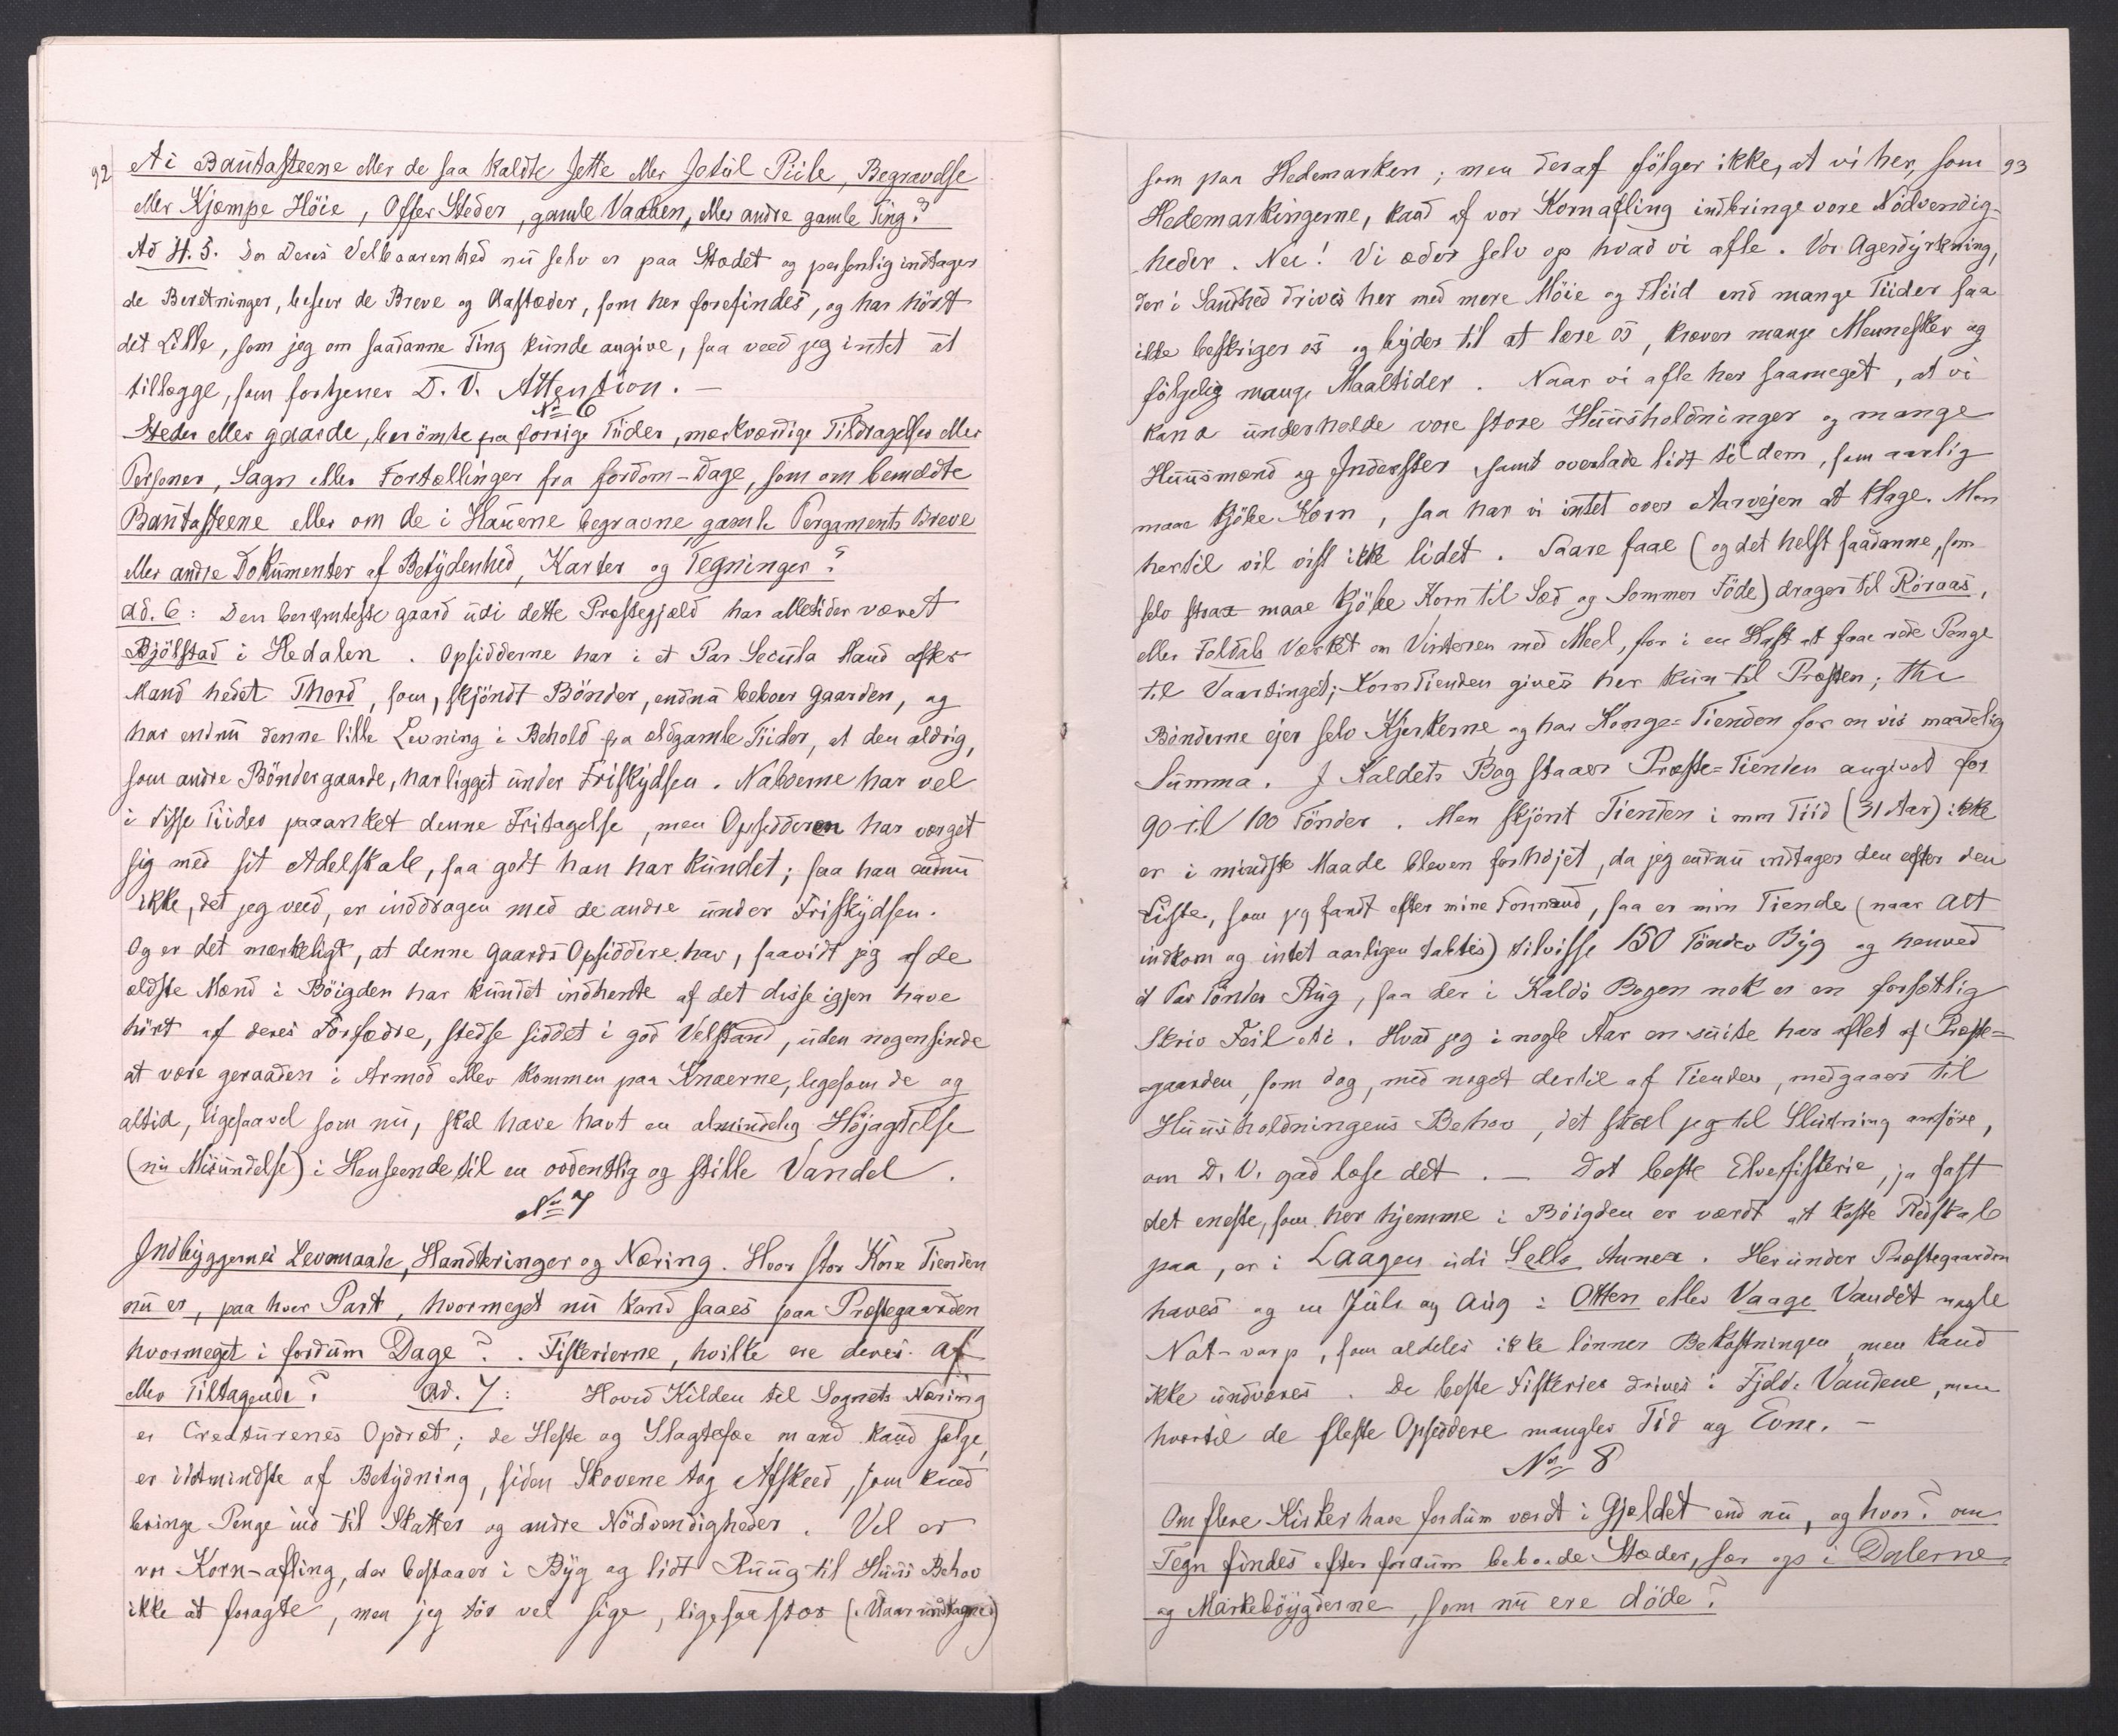 92
Ai Bautasteene eller de saa kaldte Jette eller Jetul Piile, Begravelse
eller Kjæmpe Höie, Offer Steder, gamle Vaaben, eller andre gamle Ting?
Ad H. 5. Da Deres Velbaarenhed nu selv er paa Stædet og personlig indtager
de Beretninger, beseer de Breve og Aastæder, som her forefindes, og har hört
det Lille, som jeg om saadanne Ting kunde angive, saa veed jeg intet at
tillægge, som fortjener D. V. Attention. —
No 6
Steder eller gaarde, berömte fra forrige Tiider, mærkværdige Tildragelser eller
Personer, Sagn eller Fortællinger fra fordom-Dage, som om bemeldte
Bautasteene eller om de i Hauene begravne gamle Pergaments Breve
eller andre Dokumenter af Betydenhed, Karter og Tegninger?
Ad. 6: Den berömteste gaard udi dette Præstegjæld har alletider været
Bjölstad i Hedalen. Opsidderne har i et Par Secula Mand efter
Mand hedet Thord, som, skjöndt Bönder, endnu beboer Gaarden, og
har endnu denne lille Levning i Behold fra ældgamle Tiider, at den aldrig,
som andre Böndergaarde, har ligget under Friskydsen. Naboerne har vel
i disse Tiider paaanket denne Fritagelse, men Opsidderen har værget
sig med sit Adelskab, saa godt han har kundet; saa han endnu
ikke, det jeg veed, er inddragen med de andre under Friskydsen.
Og er det mærkeligt, at denne Gaards Opsiddere har, saavidt jeg af de
ældste Mænd i Böigden har kundet indhente af det disse igjen have
hört af deres Forfædre, stedse siddet i god Velstand, uden nogensinde
at være geraaden i Armod eller kommen paa Knæerne, ligesom de og
altid, ligesaavel som nu, skal have havt en almindelig Höjagtelse
(nu Misundelse) i Henseende til en ordentlig og stille Vandel.
No 7
Indbyggernes Levemaade, Handteringer og Næring. Hvor stor Korn Tienden
nu er, paa hver Part, hvormeget nu kand saaes paa Præstegaarden
hvormeget i fordum Dage? . Fiskerierne, hvilke ere deres. Af
eller Tiltagende? Ad. 7: Hoved Kilden til Sognets Næring
er Creaturenes Opdræt; de Heste og Slagtefæe mand kand sælge,
er idetmindste af Betydning, siden Skovene tog Afskeed, som kand
bringe Penge ind til Skatter og andre Nödvendigheder. Vel er
vor Korn-afling, der bestaaer i Byg og lidt Ruug til Huus Behov
ikke at foragte, men jeg tör vel sige, ligesaa stor (Uaar indtagne)
93
som paa Hedemarken; men deraf fölger ikke, at vi her, som
Hedemarkingerne, kand af vor Kornafling indbringe vore Nödvendig-
heder. Nei! Vi æder selv op hvad vi afle. Vor Agerdyrkning,
der i Sandhed drives her med mere Möie og Fliid end mange Tiider saa
ikke beskriger os og byder til at lære os, kræver mange Mennesker og
fölgelig mange Maaltider. Naar vi afle her saameget, at vi
kand underholde vore store Huusholdninger og mange
Huusmænd og Inderster, samt overlade lidt til dem, som aarlig
maae kjöbe Korn, saa har vi intet over Aarvejen at klage. Men
hertil vil vist ikke lidet. Saare faae (og det helst saadanne, som
selv strax maae kjöbe Korn til Sæd og Sommer Föde) drager til Röraas,
eller Foldals Værket om Vinteren med Meel, for i en Hast at faae röde Penge
til Vaartinget; Korn Tienden gives her kun til Præsten; thi
Bönderne ejer selv Kjerkerne og har Konge-Tienden for en vis maadelig
Summa. I Kaldets Bog staaer Præste-Tienden angivet for
90 til 100 Tönder. Men skjönt Tienden i min Tiid (31 Aar) ikke
er i mindste Maade bleven forhöjet, da jeg endnu indtager den efter den
Liste, som jeg fandt efter mine Formænd, saa er min Tiende (naar Alt
indkom og intet aarligen tabtes) tilvisse 150 Tönder Byg og henved
et Par Tönder Rug, saa der i Kalds Bogen nok er en forsætlig
Skriv Feil Ai. Hvad jeg i nogle Aar en suite har aflet af Præste-
gaarden, som dog, med noget dertil af Tienden, medgaaer til
Huusholdningens Behov, det skal jeg til Slutning anföre,
om D. V. gad læse det. — Det beste Elvefiskerie, ja fast
det eneste, som her hjemme i Böigden er værdt at koste Redskab
paa, er i Laagen udi Sells Annex. Herunder Præstegaarden
haves og en Juli og Aug i Otten eller Vaage Vandet nogle
Not-varp, som aldeles ikke lönner Bekostningen men kand
ikke undværes. De beste Fiskerier drives i Fjeld-Vandene, men
hvortil de fleste Opsiddere mangler Tid og Evne. —
No 8
Om flere Kirker have fordum værdt i Gjældet end nu, og hvor? om
Tegn findes efter fordum beboede Stæder, sær op i Dalerne
og Markeböygderne, som nu ere döde?